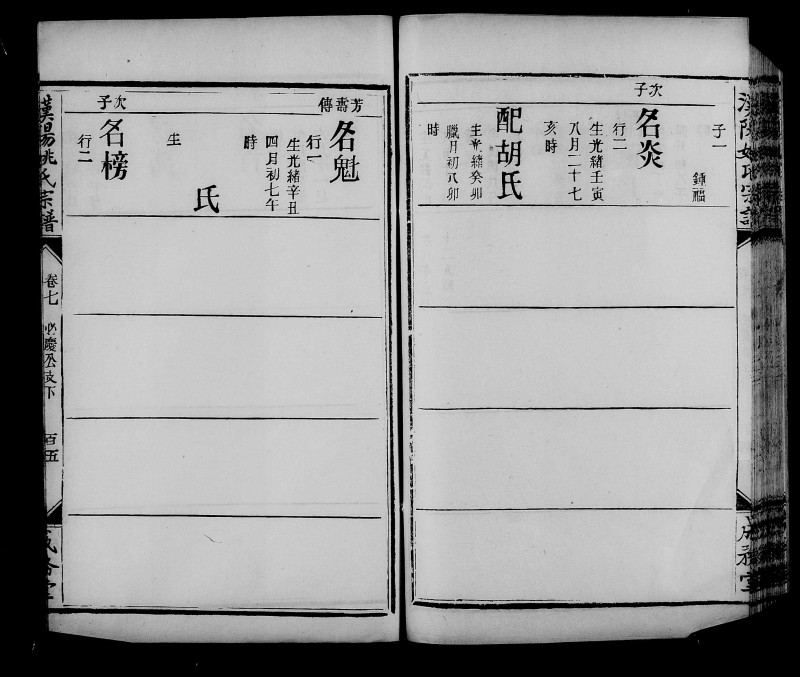 漢陽姚氏宗譜
成務堂
子一
鍾福
次子
名炎
行二
生光緒壬寅
八月二十七
亥時
配胡氏
生光緒癸卯
臘月初八卯
時
芳喬傳
名魁
行一
生光緒辛丑
四月初七午
時
氏
生
次子
名榜
行二
漢陽姚氏宗譜
卷七
必慶公支下
百五
成務堂